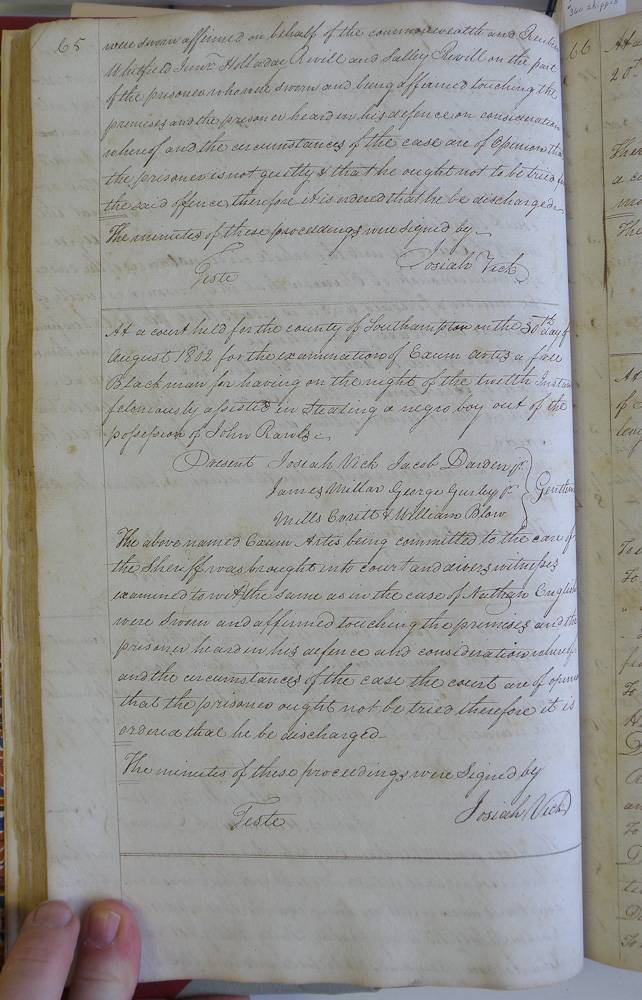 65
were sworn affirmed on behalf of the commonwealth and Reuben
Whitfield Junr Holladae Revill and Salley Revill on the part
of the prisoner who were sworn and being affirmed touching the
premises and the prisoner heard in his defence on consideration
whereof and the circumstances of the case are of Opinion that
the prisoner is not guilty & that he ought not to be tried for
the said offence, therefore it is ordered that he be discharged
The minutes of these proceedings were signed by
Teste Josiah Vick
At a court held for the county of Southampton on the 30th day of
August 1802 for the examination of Exum Artis a free
Black man for having on the night of the twelth Instan
feloniously assisted in Steading a negro boy out of the
possession of John Rawls
Present Josiah Vick Jacob Darden jr
James Millar George Gurley jr
Mills Everett & William Blow
Gentlem
The above named Exum Artis being committed to the care of
the Sheriff was brought into court and divers witnesses
examined to wit the same as in the case of Nathan English
were Sworn and affirmed touching the premises and the
prisoner heard in his defence and consideration whereof
and the circumstances of the case the court are of opinion
that the prisoner ought not be tried therefore it is
ordered that he be discharged
The minutes of these proceedings were Signed by
Teste Josiah Vick
66